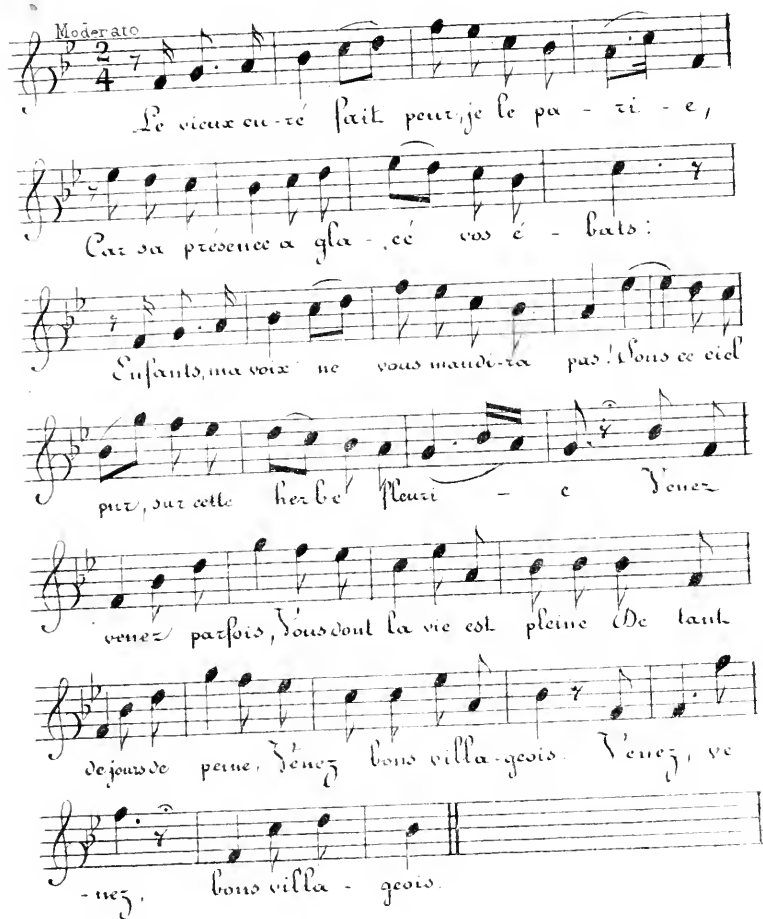 Moderato
2
4
Le vieux cu-ré fait peur, je le pa - ri - e,
Car sa présence a gla - cé vos é - bats:
Enfants, ma voix ne vous maudi-ra pas! Sous ce ciel
pur, sur cette herbe fleuri - e Venez
venez parfois, Vous dont la vie est pleine De tant
de jours de peine, Venez bons villa-geois. Venez, ve
-nez, bons villa - geois.